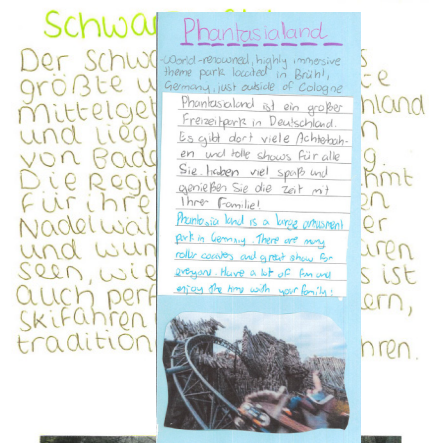 Schwa
Der Schw
größte u te
Mittelge hland
und lieg n
von Bade g.
Die Regi hmt
für ihre
Nadelwäl er
und wun uren
Seen, wie s ist
auch perf ern,
Skifahren
tradition hren.
Phantasialand
-World-renowned, highly immersive
theme park located in Brühl,
Germany, just outside of Cologne
Phantasialand ist ein großer
Freizeitpark in Deutschland.
Es gibt dort viele Achterbah-
en und tolle shows für alle
Sie haben viel spaß und
genießen Sie die Zeit mit
Ihrer Familie!
Phantasia land is a large amusment
park in Germany. There are many
roller coasters and great show for
everyone. Have a lot of fun and
enjoy the time with your family!